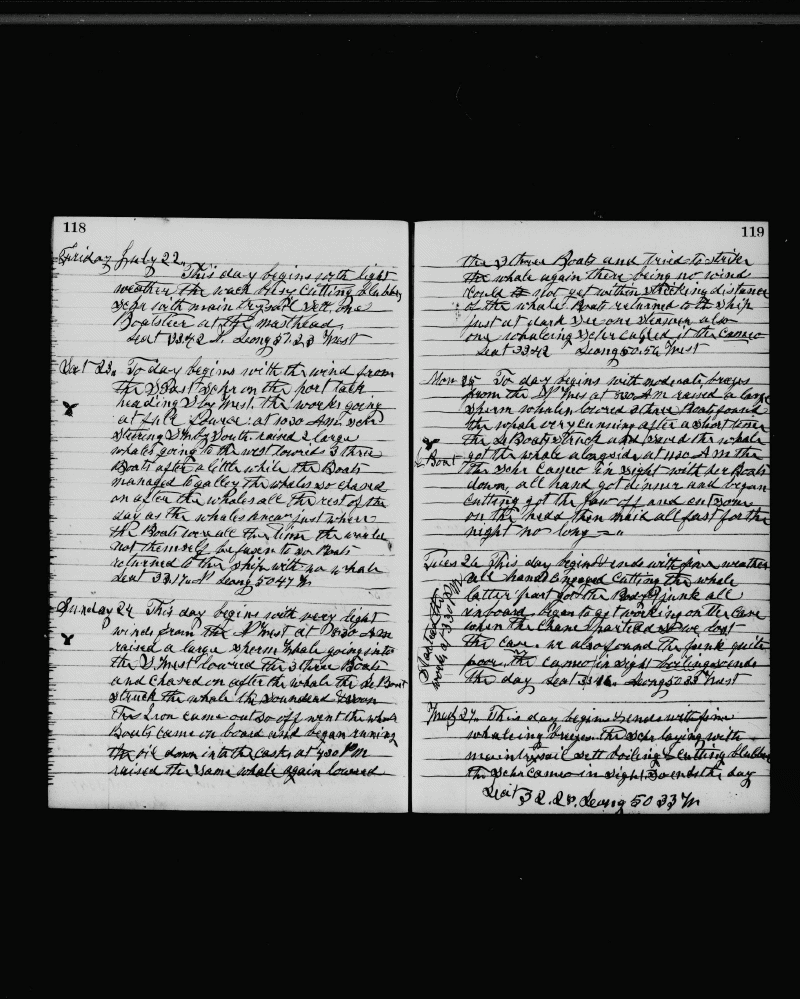 118
Friday July 22.
This day begins with light
weather the wach busy cutting blubber
schr with main trysail sett, one
Boatsteer at the masthead.
Leat 33.42 N. Leong 51.23 West
Sat 23. To day begins with the wind from
the S West schr on the port tack
heading S by West. the works going
at full Power. at 10.30 AM schr
steering S raised 2 large
whales going to the west towards 3 three
Boats after a little while the Boats
managed to galley the whales so chased
on after the whales all the rest of the
day as the whales just where
the Boats were all the time the
not themself so Boats
returned to the ship with no whale
Leat 33.17 N Leong 50 47 W
Sunday 24 This day begins with very light
winds from the N West at 8.30 AM
raised a large sperm whale going into
the S. West lowered the 3 three Boats
and chased on after the whale the Boat
struck the whale he sounded & soon
The Iron came out so off went the whale
Boats came on board and began runing
the oil down into the casks at 4.30 PM
raised the same whale again lowered
119
the 3 three Boats and tried to strike
the whale again there being no wind
could not get within strieking distance
of the whale Boats returned to the ship
just at dark see one steamer also
one whaleing schr called it the Cameo
Leat 33.42 Leong 50.56 West
Mon 25 To day begins with moderate breezes
from the N Wes at AM raised a large
sperm whale lowered 3 three Boats found
the whale very cunning after a short time
the Boat struck and saved the whale
Boat
got the whale alongside at 11.00 AM the
the schr Cameo in sight with her Boats
down, all hand got dinner and began
cutting got the Jaw off and cut some
on the head then maid all fast for the
night no long
Tues 26 This day begins & ends with fine weather
all hands engaged cutting the whale
latter part got the Body & junk all
onboard, began to get working on the case
when the chane parted so we lost
the case. we also found the junk quite
poor, the cameo in sight boiling so ends
the day Leat 33 16. Leong 50 33 West
Started the
works at 3.30 PM
Wed 27. This day begins & ends with fine
whaleing breezes. the schr laying with
main trysail sett boiling & cutting blubber
the schr cameo in sight. So ends the day
Leat 32.28. Leong 50 33 W